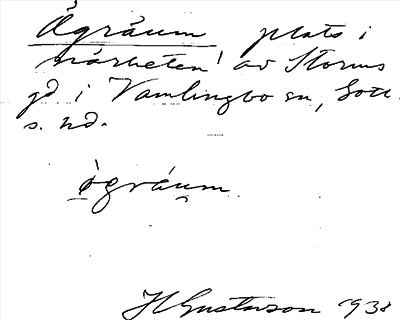 Ågråum plats i
närheten av Storms
gd i Vamlingbo sn, Gotl.
s. hd.
ògráum
H Gustavson 1938